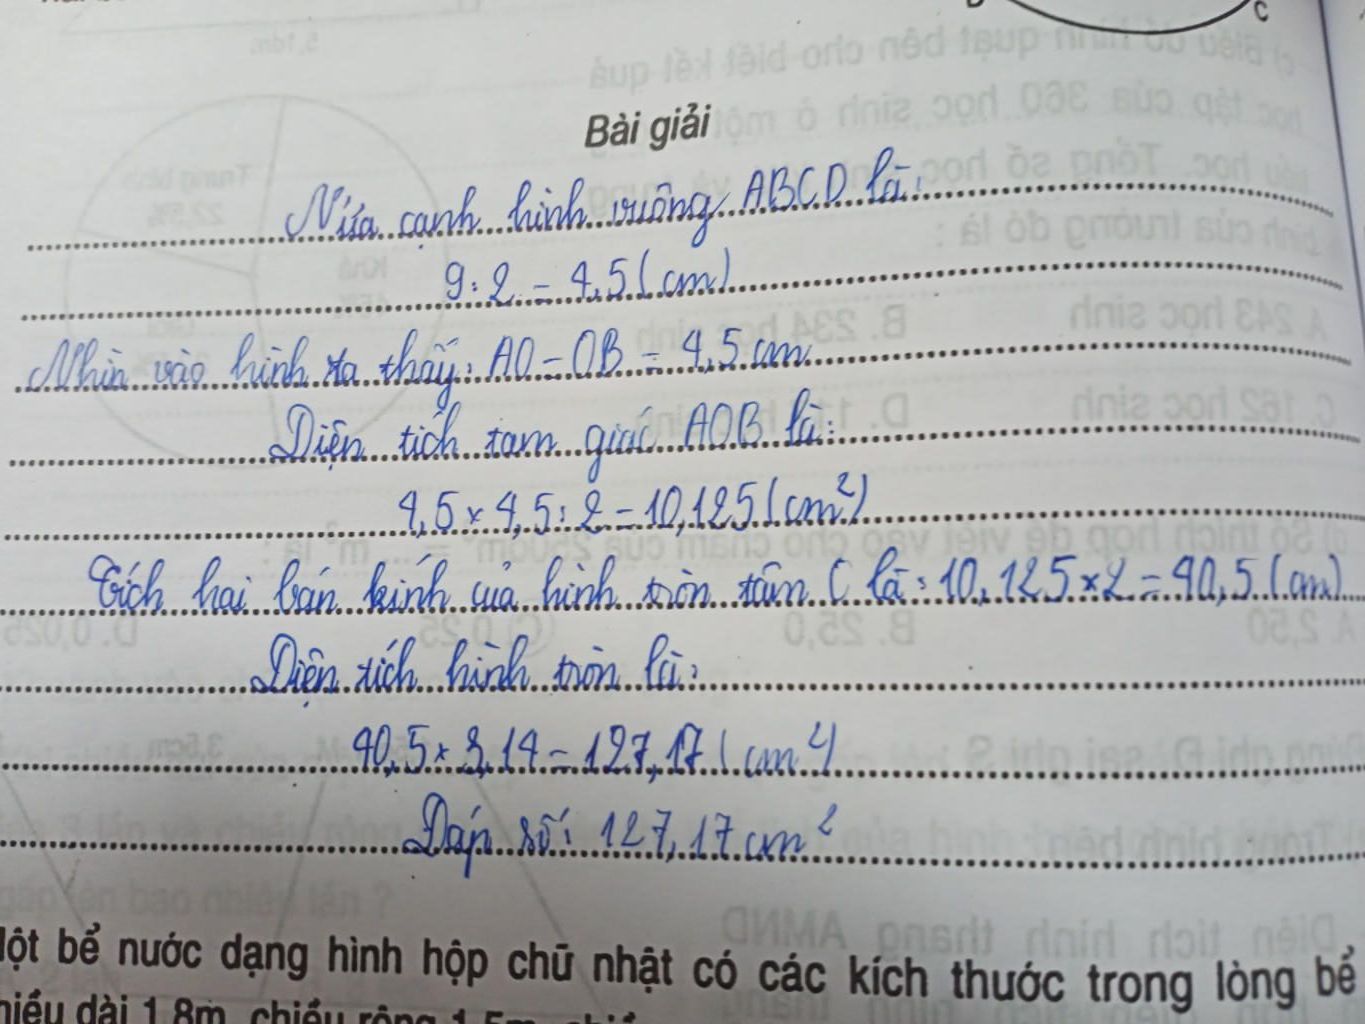 C
Bài giải
Nửa cạnh hình vuông ABCD là:
9 : 2 = 4,5 (cm)
Nhìn vào hình ta thấy: AO = OB = 4,5 cm
Diện tích tam giác AOB là:
4,5 × 4,5 : 2 = 10,125 (cm²)
Tích hai bán kính của hình tròn tâm C là: 10,125 × 2 = 40,5 (cm)
Diện tích hình tròn là:
40,5 × 3,14 = 127,17 (cm²)
Đáp số: 127,17 cm²
Một bể nước dạng hình hộp chữ nhật có các kích thước trong lòng bể
chiều dài 1,8m, chiều rộng 1,5m